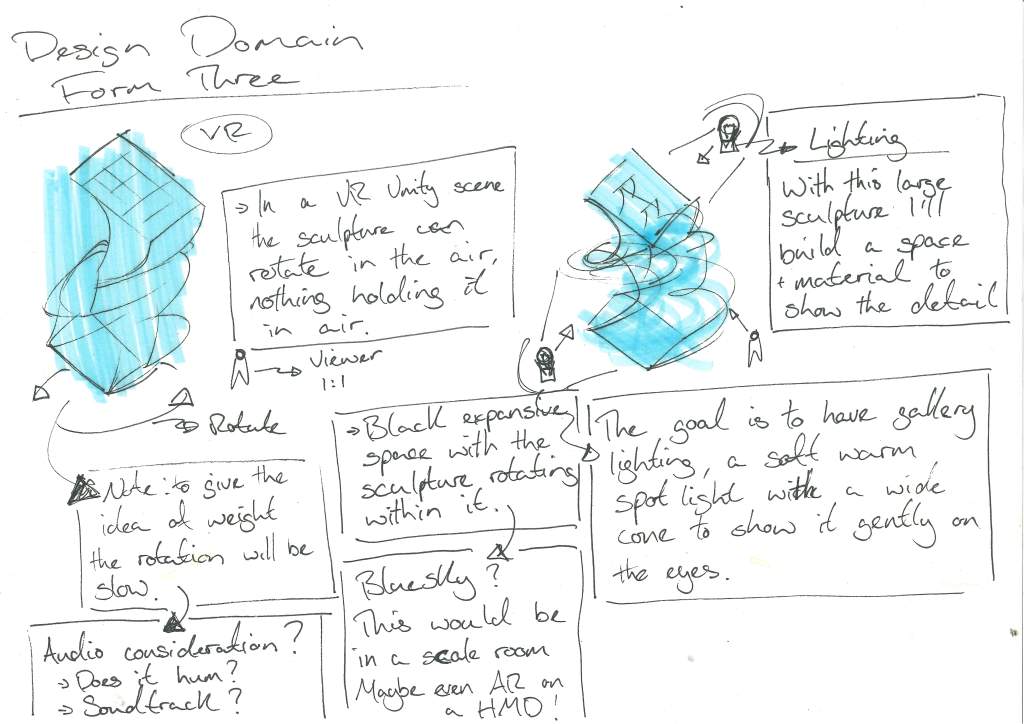 Design Domain
Form Three
VR
→ In a VR Unity scene
the sculpture can
rotate in the air,
nothing holding it
in air.
→ Viewer
1:1
→ Rotate
Note: to give the
idea of weight
the rotation will be
slow.
Audio consideration?
→ Does it hum?
→ Soundtrack?
→ Black expansive
space with the
sculpture rotating
within it.
Bluesky?
This would be
in a scale room
Maybe even AR on
a HMD!
→ Lighting
With this large
sculpture I'll
build a space
+ material to
show the detail
The goal is to have gallery
lighting, a soft warm
spot light with a wide
cone to show it gently on
the eyes.